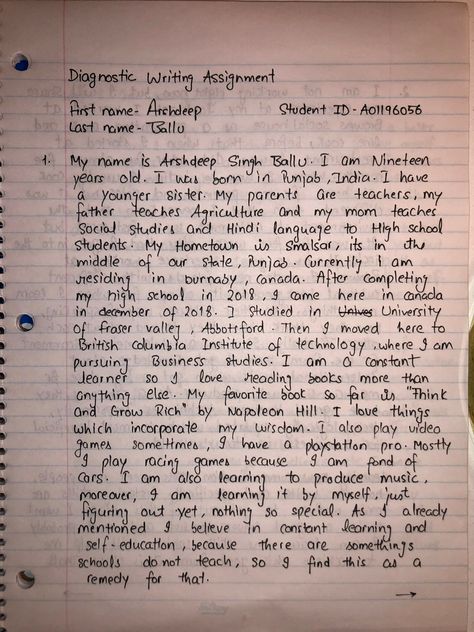 Diagnostic Writing Assignment
First name- Arshdeep Student ID-A01196056
Last name- Ballu
1. My name is Arshdeep Singh Ballu. I am Nineteen
years old. I was born in Punjab, India. I have
a younger sister. My parents are teachers, my
father teaches Agriculture and my mom teaches
Social Studies and Hindi language to High school
students. My Hometown is Smalsar, its in the
middle of our state, Punjab. Currently I am
residing in burnaby, Canada. After completing
my high school in 2018, I came here in canada
in december of 2018. I studied in Unives University
of fraser valley, Abbotsford. Then I moved here to
British columbia Institute of technology, where I am
pursuing Business studies. I am a constant
learner so I love reading books more than
anything else. My favorite book so far is "Think
and Grow Rich" by Napoleon Hill. I love things
which incorporate my wisdom. I also play video
games sometimes, I have a playstation pro. Mostly
I play racing games because I am fond of
cars. I am also learning to produce music,
moreover, I am learning it by myself, just
figuring out yet, nothing so special. As I already
mentioned I believe in constant learning and
self-education, because there are somethings
schools do not teach, so I find this as a
remedy for that.
→